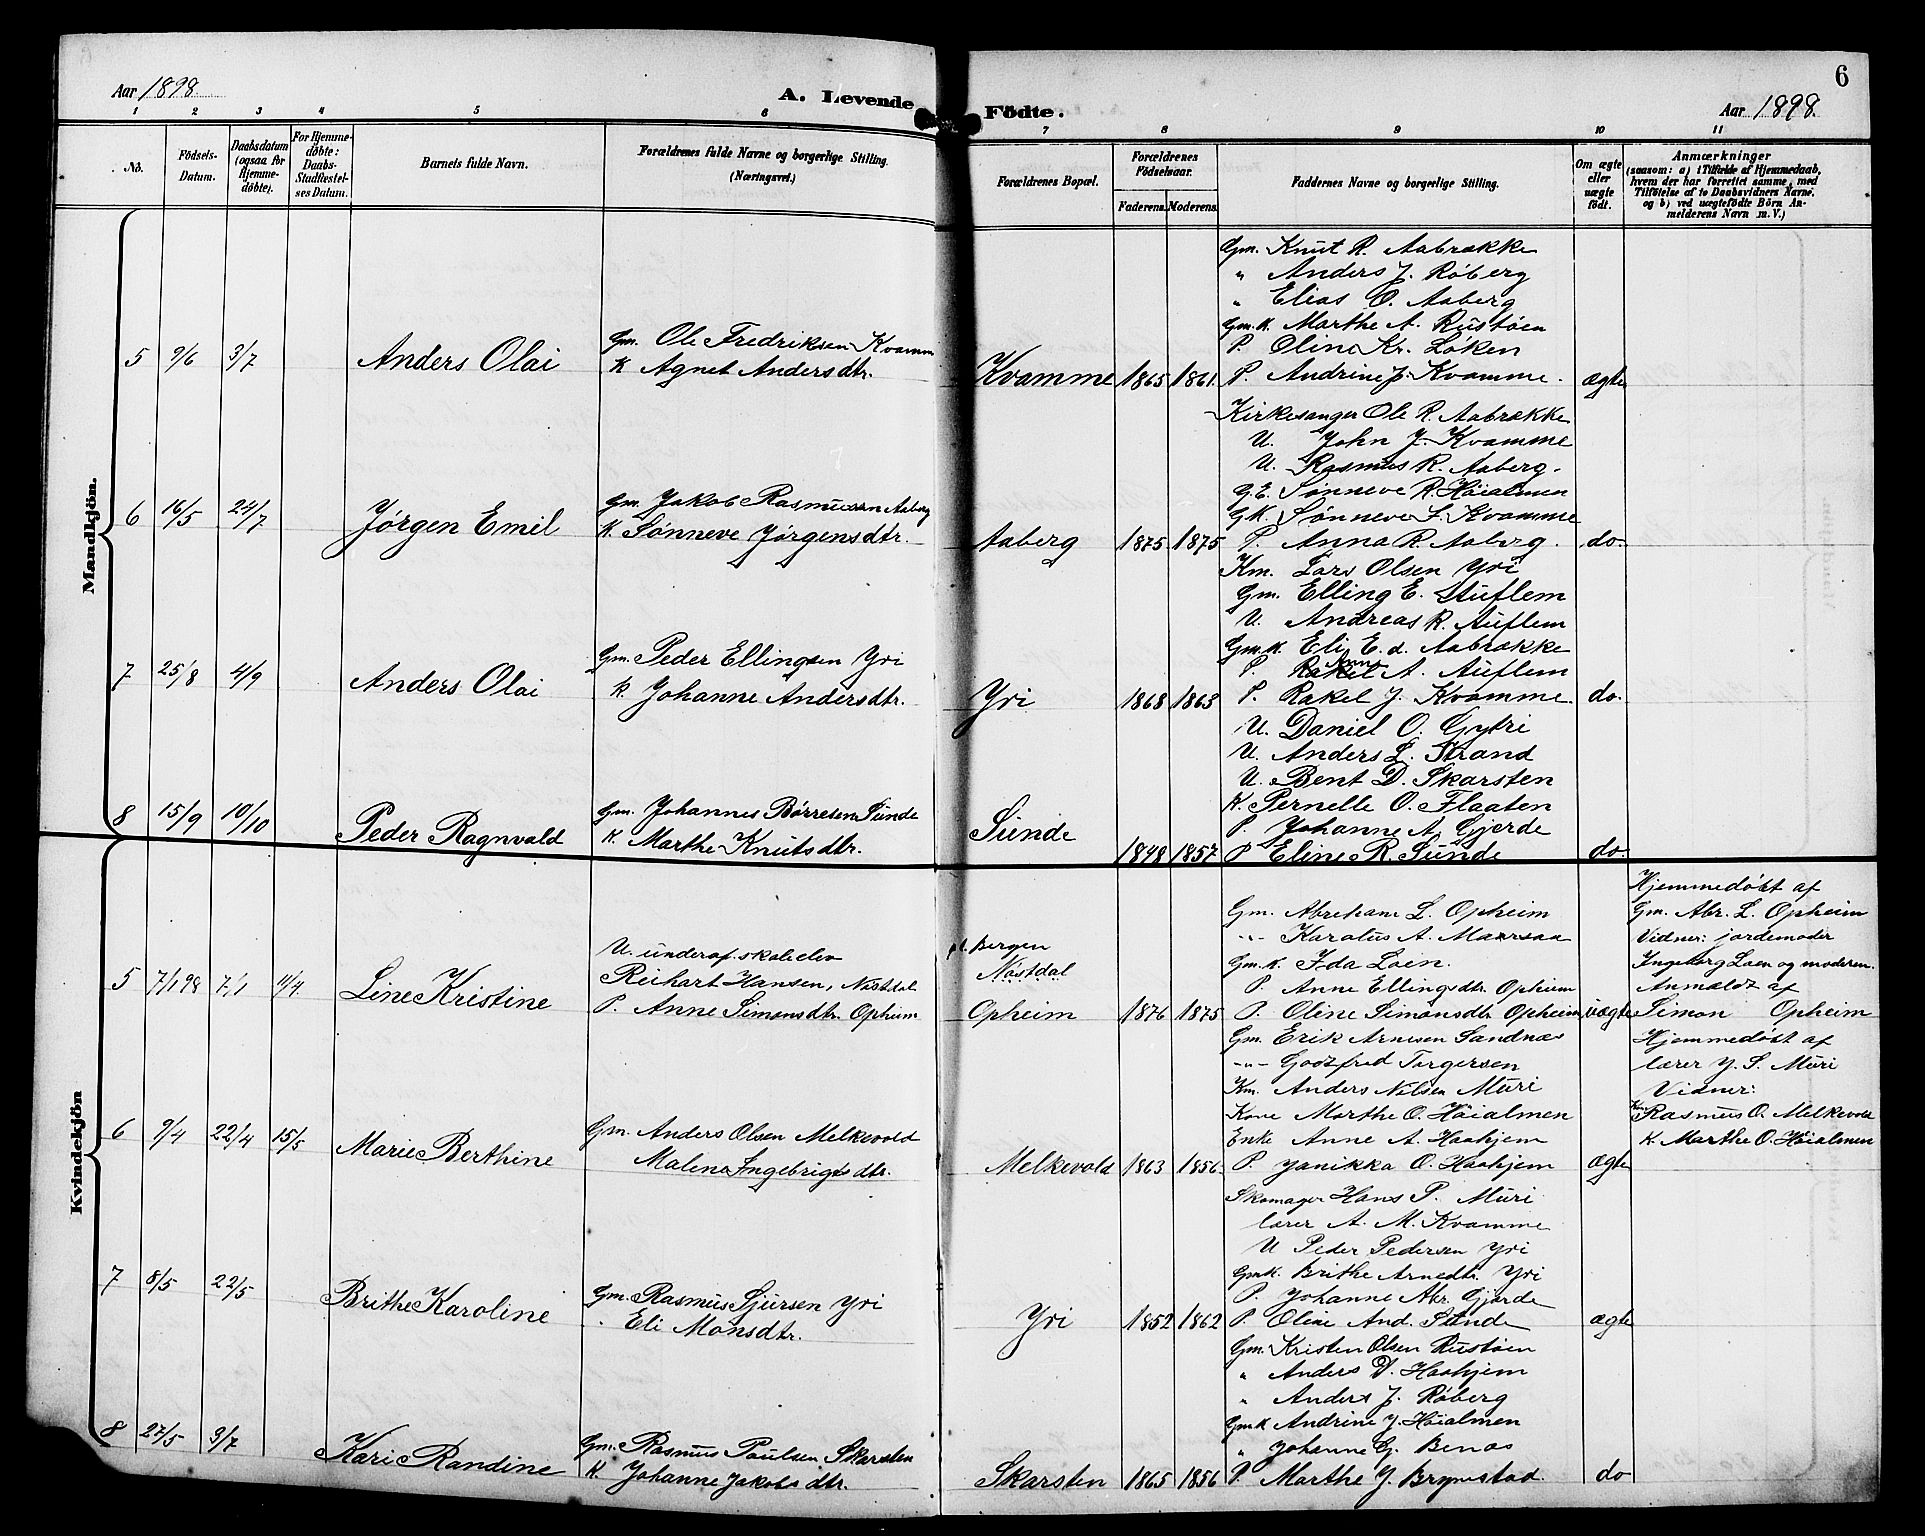 6
Aar 1898.
A. Levende Födte.
Aar 1898.
1 2 3 4 5 6 7 8 9 10 11
No.
Födsels-Datum.
Daabsdatum (ogsaa för Hjemme-döbte).
For Hjemme-döbte: Daabs-Stadfæstelses Datum.
Barnets fulde Navn.
Forældrenes fulde Navne og borgerlige Stilling.
(Næringsvei.)
Forældrenes Bopæl.
Forældrenes Födselsaar.
Faderens. Moderens.
Faddernes Navne og borgerlige Stilling.
Om ægte eller uægte födt.
Anmærkninger
(saasom: a) i Tilfælde af Hjemmedaab, hvem der har forrettet samme, med Tilföielse af to Daabsvidners Navne, og b) ved uægtefödte Börn Anmelderens Navn m. V.)
Mandkjön.
Gm. Knut R. Aabrække
" Anders J. Röberg
" Elias O. Aaberg
Gm. K. Marthe A. Rustöen
P. Oline Kr. Löken
5 9/6 3/7 Anders Olai
Gm. Ole Fredriksen Kvamm
K Agnet Andersdtr.
Kvamme 1865 1861. P. Andrine J. Kvamme. ægte
Kirkesanger Ole R. Aabrække
U. John J. Kvamme
U. Rasmus R. Aaberg.
G. E. Sönneve R. Höialmen
G K. Sönneve J. Kvamme
6 16/5 24/7 Jörgen Emil
Gm. Jakob Rasmusen Aaberg
K. Sönneve Jörgensdtr.
Aaberg 1875 1875 P. Anna R. Aaberg. do.
Km. Lars Olsen Yri
Gm. Elling E. Stuflem
U. Andreas R. Auflem
Gm. K. Eli E. d. Aabrække
P. Anne A. Auflem
7 25/8 4/9 Anders Olai
Gm. Peder Ellingsen Yri
K. Johanne Andersdtr.
Yri 1868 1863 P. Rakel J. Kvamme. do.
U. Daniel O. Gytri
U. Anders L. Strand
U. Bent D. Skarsten
K. Pernelle O. Flaaten
P. Johanne A. Gjerde
8 15/9 10/10 Peder Ragnvald
Gm. Johannes Börresen Sunde
K. Marthe Knutsdtr.
Sunde 1848 1857 P Eline R. Sunde do.
Kvindekjön
Gm. Abreham L. Opheim
-"- Karolus A. Maursaa
Gm. K. Ida Loen.
P. Anne Ellingsdtr Opheim
5 7/1 98 7/1 11/4. Line Kristine
U. underof. skoleelev
Reichart Hansen, Nöstdal
P. Anne Simonsdtr. Opheim
Bergen
Nöstdal
Opheim 1876 1875 P. Oline Simonsdtr Opheim uægte
Hjemmedöbt af
Gm. Abr. L. Opheim
Vidner: jordemoder
Ingeborg Loen og moderen.
Anmeldt af
Simon Opheim
Gm. Erik Arnesen Sandnæs
-"- Godtfred Torgersen
Km. Anders Nilsen Muri
Kone Marthe O. Höialmen
Enke Anne A. Haahjem
6 9/4 22/4 15/5 Marie Berthine
Gm. Anders Olsen Melkevold
Malene Ingebrigtsdtr.
Melkevold 1863 1856. P. Janikka O. Haahjem ægte
Hjemmedöbt af
lærer J. S. Muri
Vidner:
Rasmus O. Melkevold
K Marthe O. Höialmen
Skomager Hans P. Muri
lærer A. M. Kvamme
U Peder Pedersen Yri
GmK. Brithe Arnedtr. Yri
P. Johanne Abr. Gjerde
7 8/5 22/5 Brithe Karoline
Gm. Rasmus Sjursen Yri
Eli Monsdtr.
Yri 1852 1862 P. Oline And. Sunde ægte
Gm. Kristen Olsen Rustöen
" Anders D. Haahjem
" Anders J. Röberg
Gm K Andrine J. Höialmen
" Johanne G. Benæs
8 27/5 3/7 Kari Randine
Gm. Rasmus Poulsen Skarsten
K. Johanne Jakobsdtr.
Skarsten 1865 1856 P. Marthe J. Brynestad. do